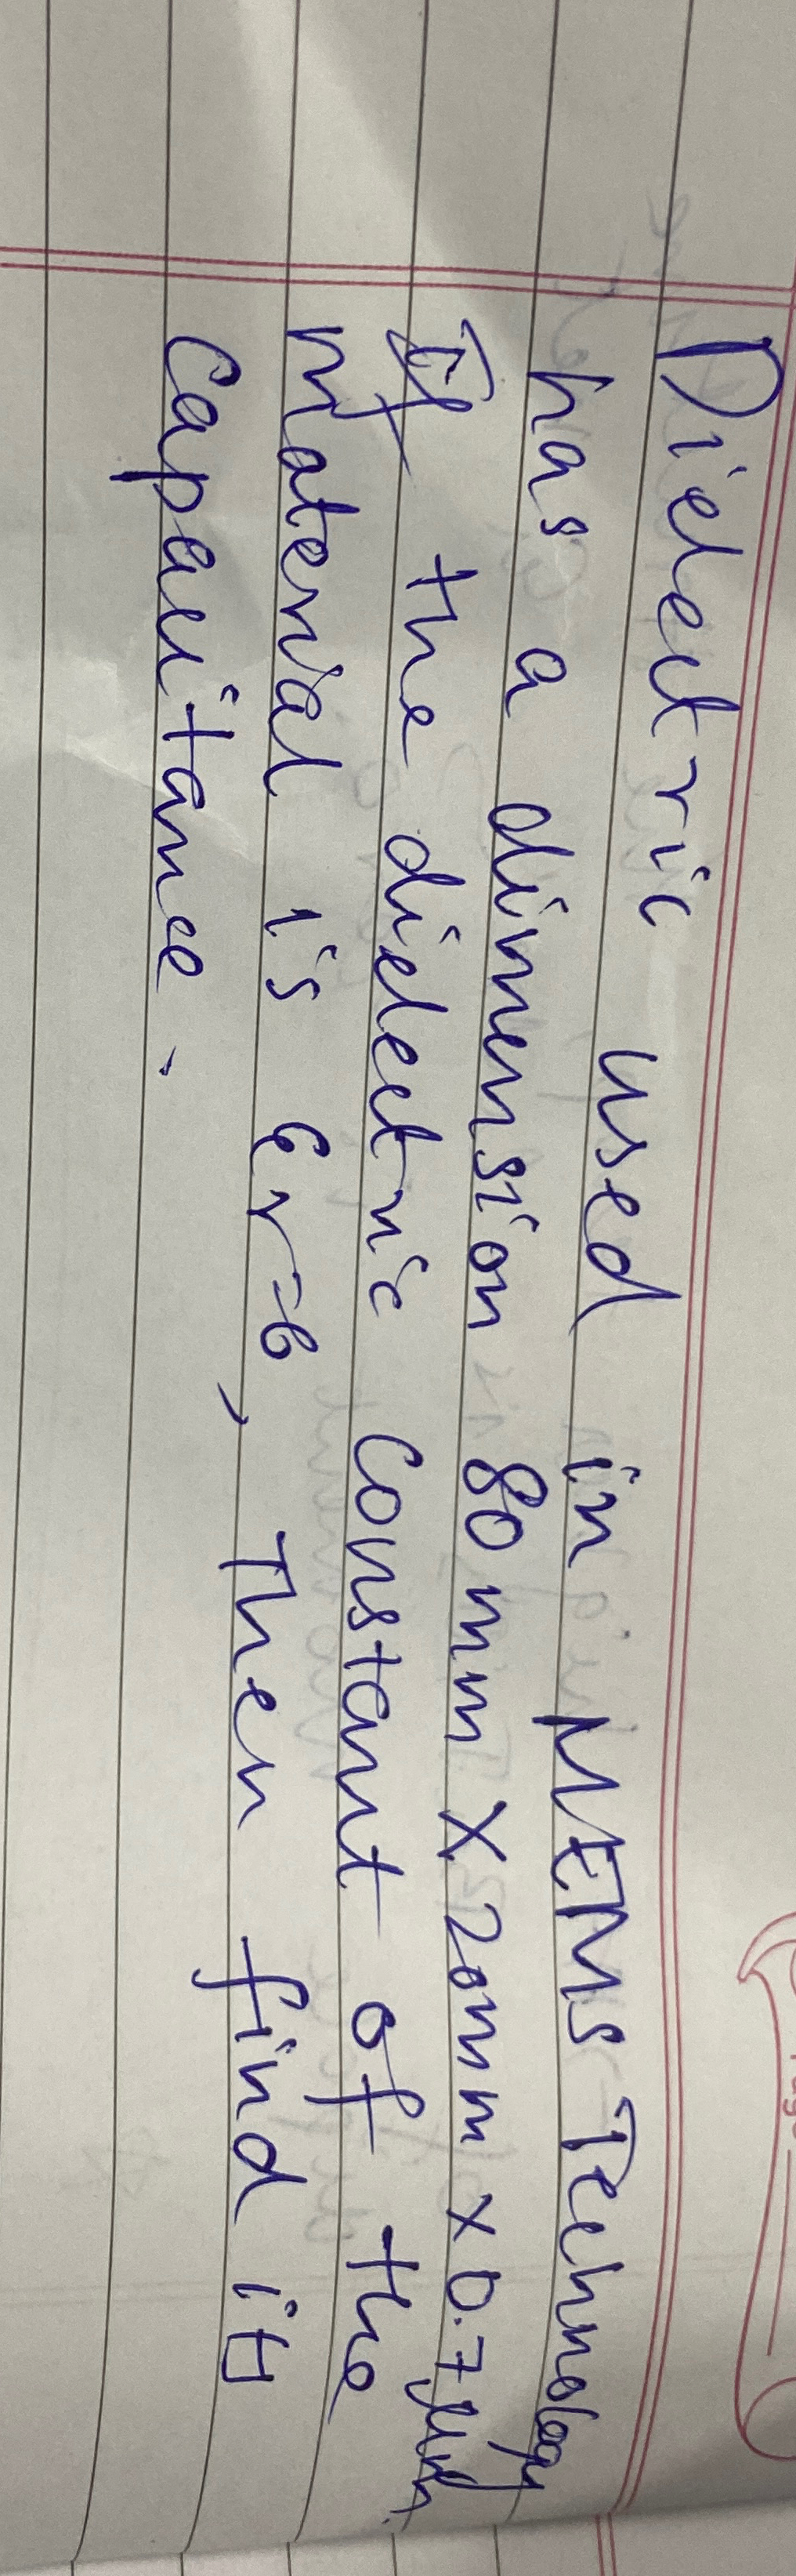 Dielectric used in MEMS Technology
has a dimension 80mm X 20mm x 0.7μm.
If the dielectric constant of the
material is Er=6, Then find its
Capacitance.